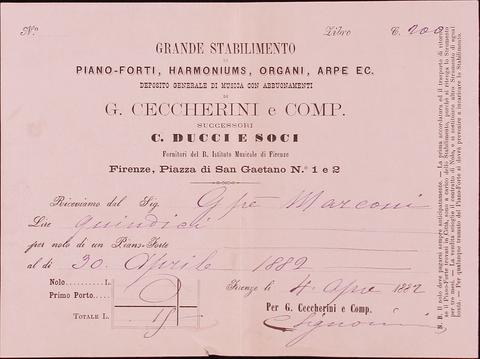 N.o Libro C. 200
GRANDE STABILIMENTO
DI
PIANO-FORTI, HARMONIUMS, ORGANI, ARPE EC.
DEPOSITO GENERALE DI MUSICA CON ABBUONAMENTI
DI
G. CECCHERINI e COMP.
SUCCESSORI
C. DUCCI E SOCI
Fornitori del R. Istituto Musicale di Firenze
Firenze, Piazza di San Gaetano N.o 1 e 2
Riceviamo dal Sig. Gpe Marconi
Lire quindici
per nolo di un Piano-Forte
al di 30 Aprile 1882
Nolo
Firenze li 4 Apre 1882
Primo Porto
Per G. Ceccherini e Comp.
TOTALE L. 15
C Signorini
N. B. Il nolo deve essere sempre anticipatamente. — La prima accordatura ed il trasporto di ritorno
se il Piano-Forte trovasi in Città, sono a carico dello Stabilimento, purchè si ritenga lo Strumento
per tre mesi. — La vendita scioglie il contratto di Nolo, e si sostituisce altro Strumento di egual
bontà. — Per qualunque tramuto del Piano-Forte si dovrà prevenire o incaricare lo Stabilimento.